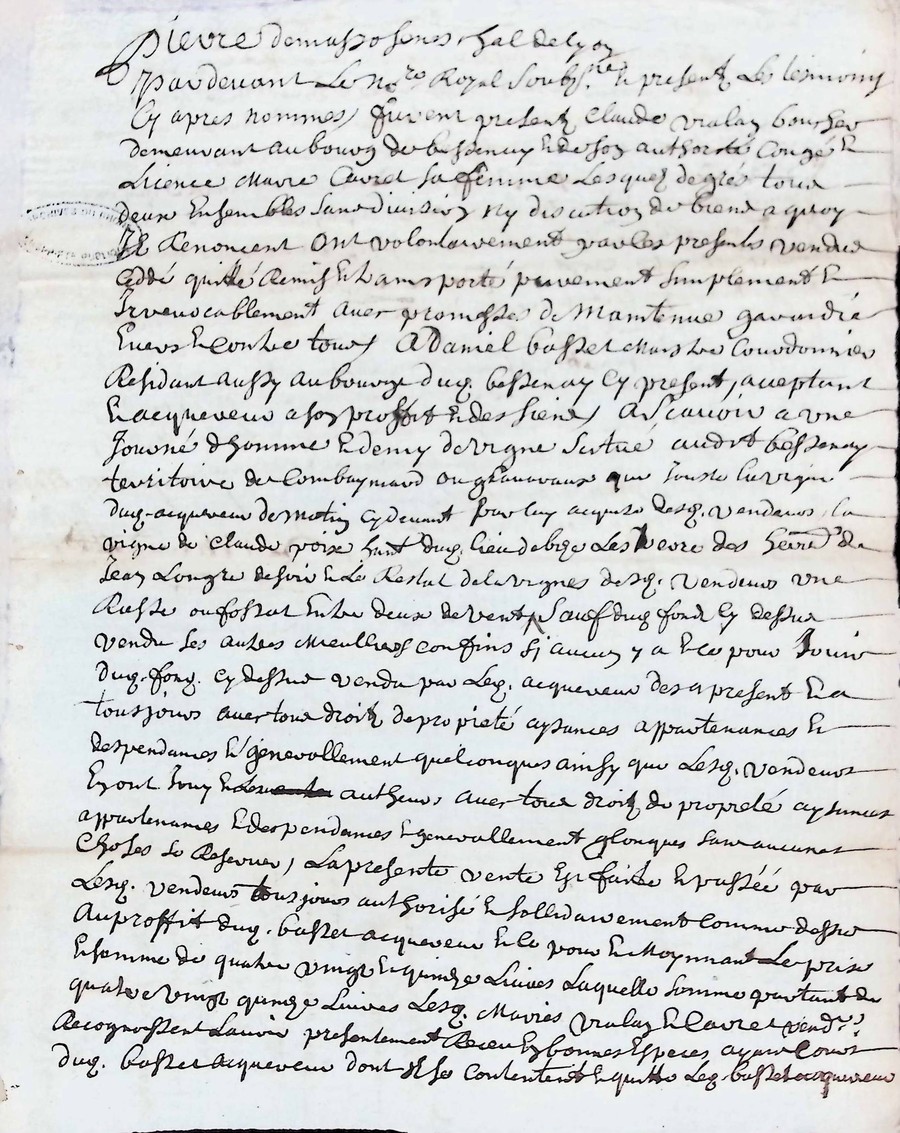 Pierre de masso seneschal de lyon
Pardevant Le no.re Royal soubs.ne Et present Les tesmoins
Cy apres nommes furent present claude vialay boucher
demeurant au bourg de bessenay Et de son authorité Congé Et
Licence Marie Cavret sa femme Lesquelz de gres tous
deux Ensembles sans division ny discution de biens a quoy
Ils Renoncent Ont volontairement par les presentes vendus
Ceddé quitté Remis Et transporté purement simplement Et
Irrevocablement avec promesses de Maintenue garandie
Envers Et Contre tous A daniel basset Maistre Courdonnier
Residant aussy au bourg dud. bessenay Cy present, aceptant
Et acquereur a son proffit Et des siens A Scavoir a une
Journé d'homme Et demy de vigne Scitué audit bessenay
territoire de Combaymard ou gravavaux que Jouste La vigne
dud. acquereur de matin Cy devant par luy acquise desd. vendeurs, la
vigne de claude voise Lesné des heres de
Jean Longre de soir Et Le Restat de la vignes desd. vendeurs une
Rasse ou fossat Entre deux de vent Sauf dud fond Cy dessus
vendu Ses autres Meilleurs confins si aucun y a Et ce pour Jouir
dud. fond. Cy dessus vendu par Led. acquereur des a present Et a
tousjours avec tous droitz de propieté aysances appartenances Et
despendances Et generallement quelconques ainsy que Lesd. vendeurs
En ont Jouy Et Leurs autheurs avec tous droitz de proprieté aysances
appartenances Et despendances Et generallement qlconques sans aucunes
Choses se Reserver, La presente vente Est faitte Et passée par
Lesd. vendeurs tousjours authorisé Et sollidairement Comme dessus
Au proffit dud. basset acquereur Et Ce pour Et Moyennant Le prix
Et somme de quatre vingt Et quinze Livres Laquelle somme partant de
quatre vingt quinze Livres Lesd. Mariés vialay Et Cavret vendrs
Recognoissent L'avoir presentement Receu En bonnes Especes ayant Cours
dud. basset acquereur dont Ils se Contentent Et quitte Led. basset acquereur